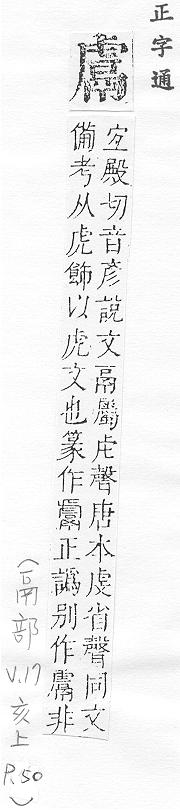 正字通
鬳
宜殿切音彦說文鬲屬虍聲唐本虔省聲同文
備考从虎飾以虎文也篆作鬳正譌别作鬳非
(鬲部 V.17 亥上 P.50)